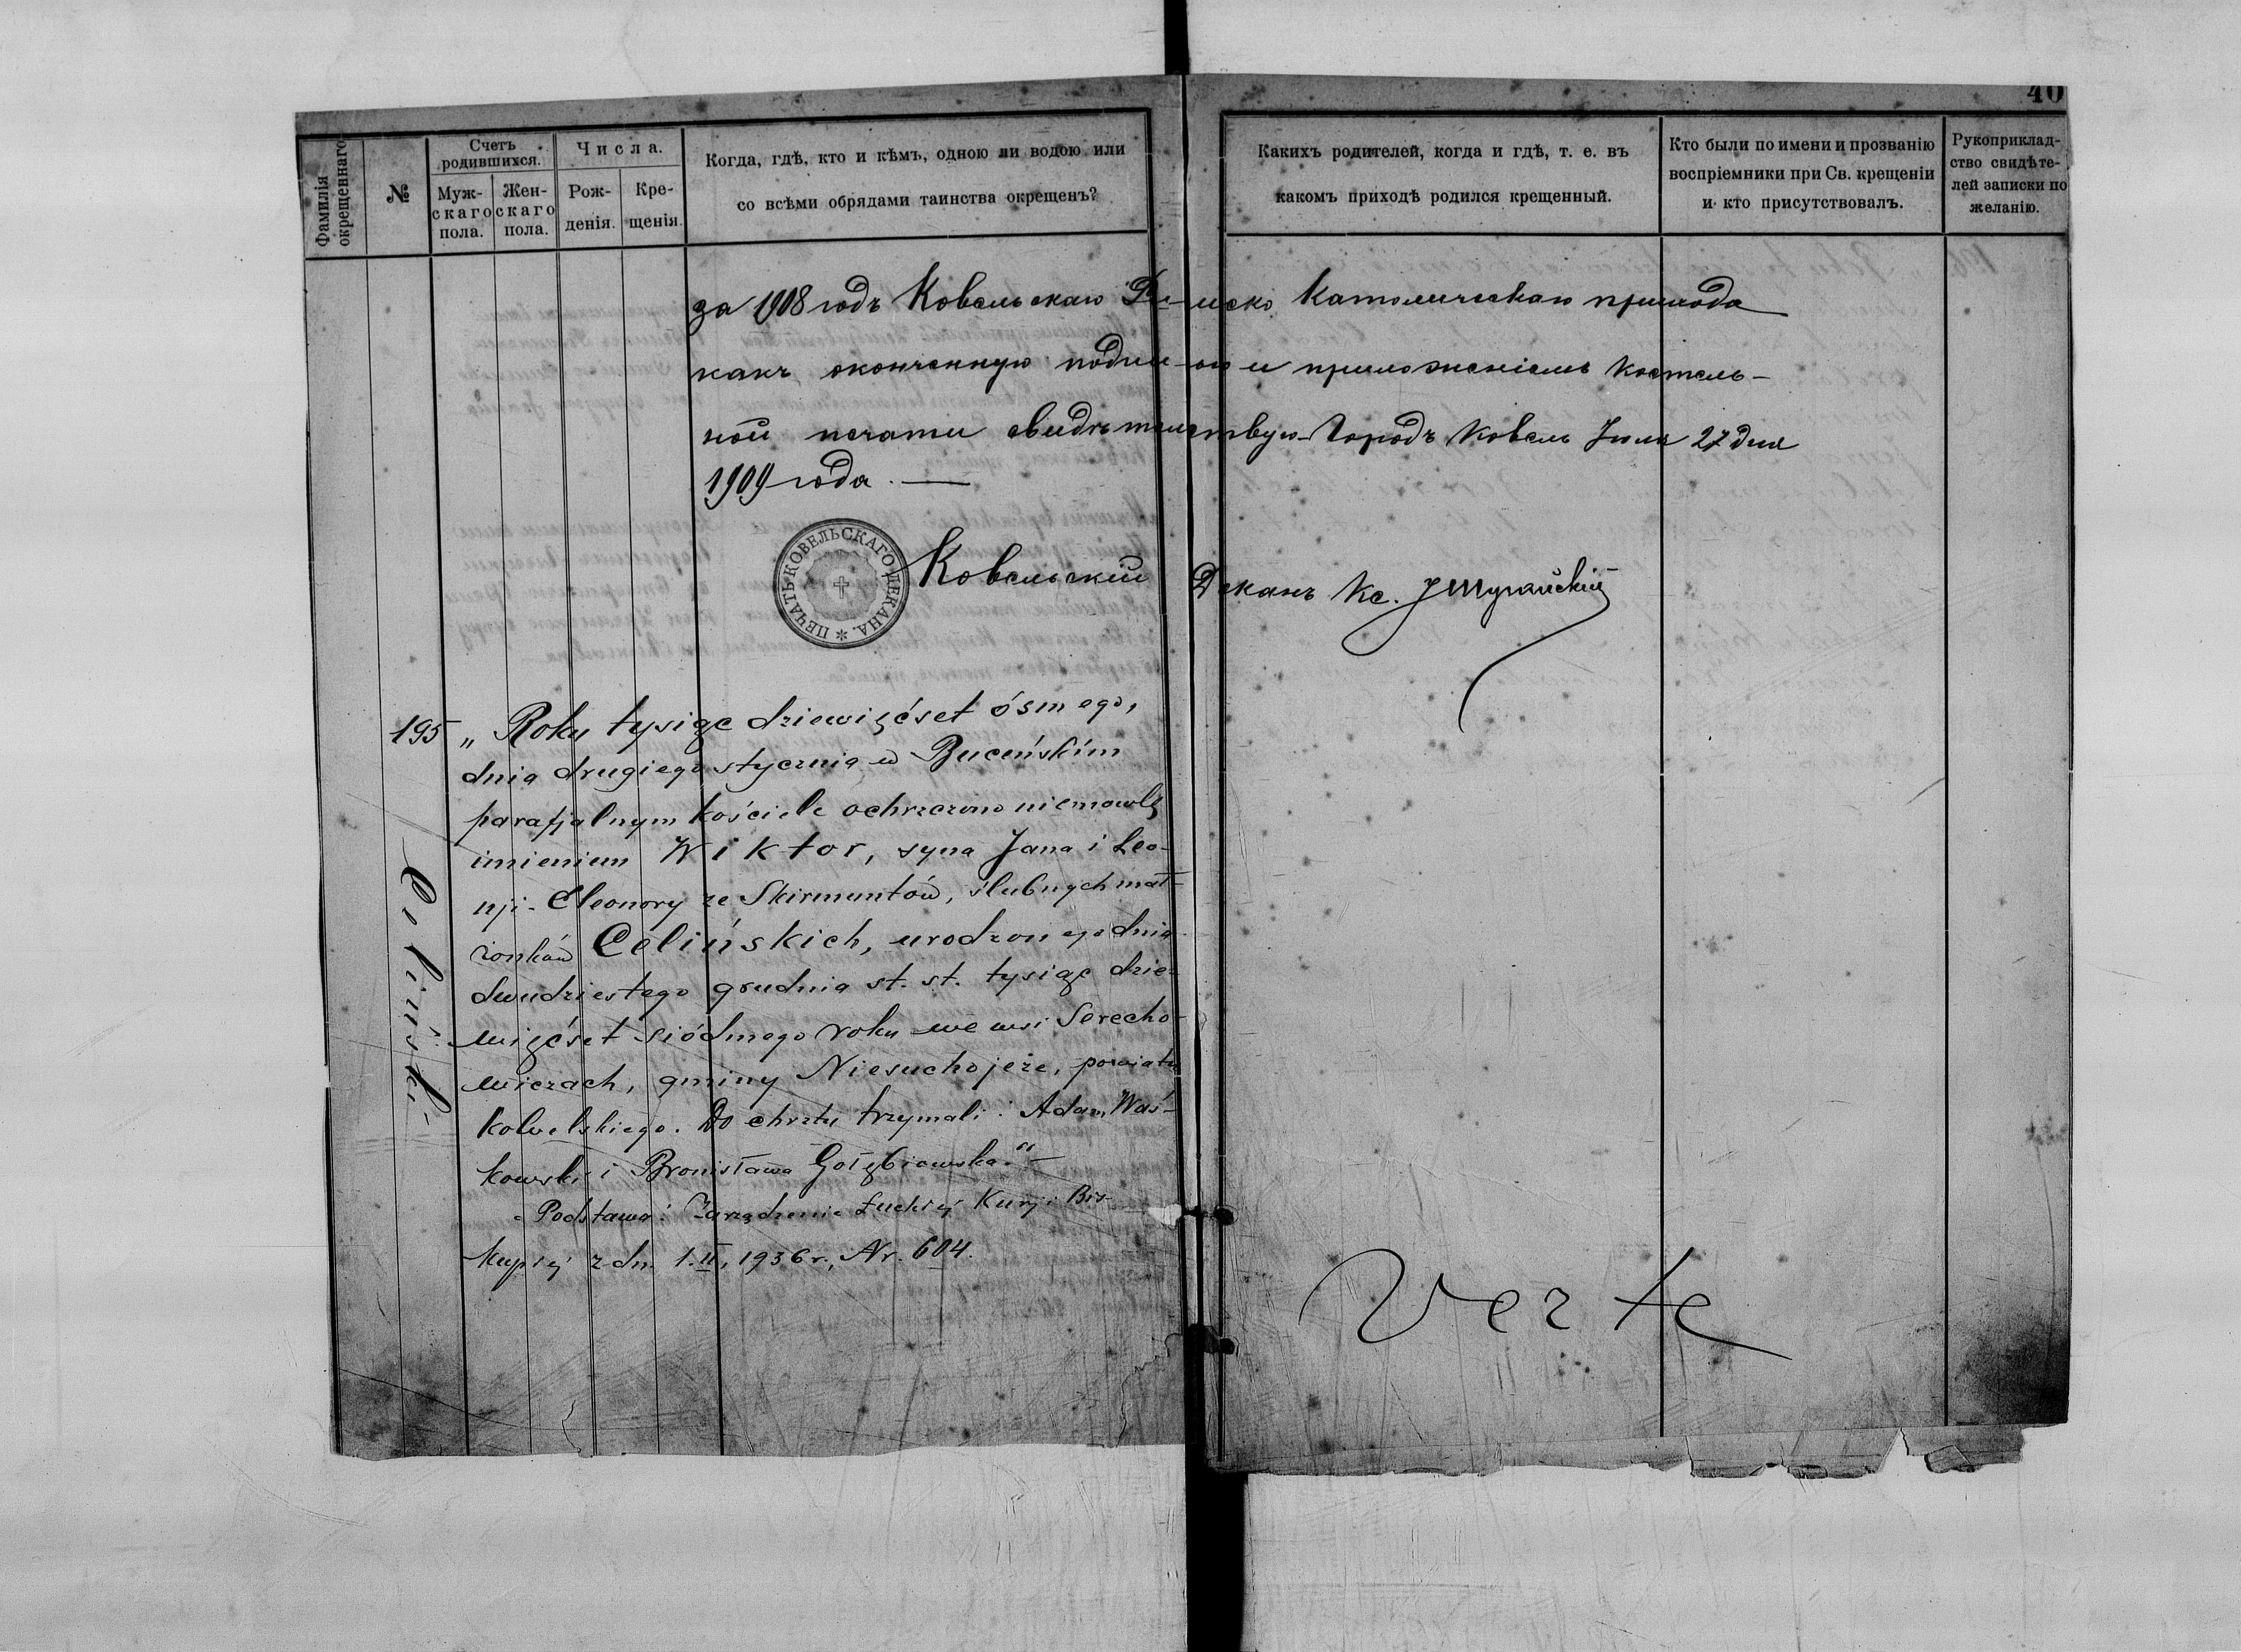 40
Фамилія окрещеннаго
№
Счетъ родившихся.
Муж-скаго пола.
Жен-скаго пола.
Числа.
Рож-денія.
Кре-щенія.
Когда, гдѣ, кто и кѣмъ, одною ли водою или
со всѣми обрядами таинства окрещенъ?
Какихъ родителей, когда и гдѣ, т. е. въ
какомъ приходѣ родился крещенный.
Кто были по имени и прозванію
воспріемники при Св. крещеніи
и кто присутствовалъ.
Рукоприклад-
ство свидѣте-
лей записки по
желанію.
за 1908 годъ Ковельскаго Римско Католическаго прихода
какъ оконченную подписью и приложеніемъ костель-
ной печати свидѣтельствую Городъ Ковель Іюля 27 дня
1909 года.
ПЕЧАТЬ КОВЕЛЬСКАГО ДЕКАНА.
Ковельскій Деканъ Кс.
195 „Roku tysiąc dziewięćset ósmego,
dnia drugiego stycznia w Buceńskim
parafjalnym kościele ochrzczono niemowlę
imieniem Wiktor, syna Jana i Leo-
nji-Eleonory ze Skirmuntów, ślubnych mał-
żonków Celińskich, urodzonego dnia
dwudziestego grudnia st. st. tysiąc dzie-
więćset siódmego roku we wsi Serecho-
wiczach, gminy Niesuchojeże, powiatu
Kowelskiego. Do chrztu trzymali: Adam Waś-
kowski i Bronisława Gołębiowska."
Podstawa: Zarządzenie Łuckiej Kurji Bis-
kupiej z dn. 1.II.1936 r., Nr. 604.
Celiński
Verte